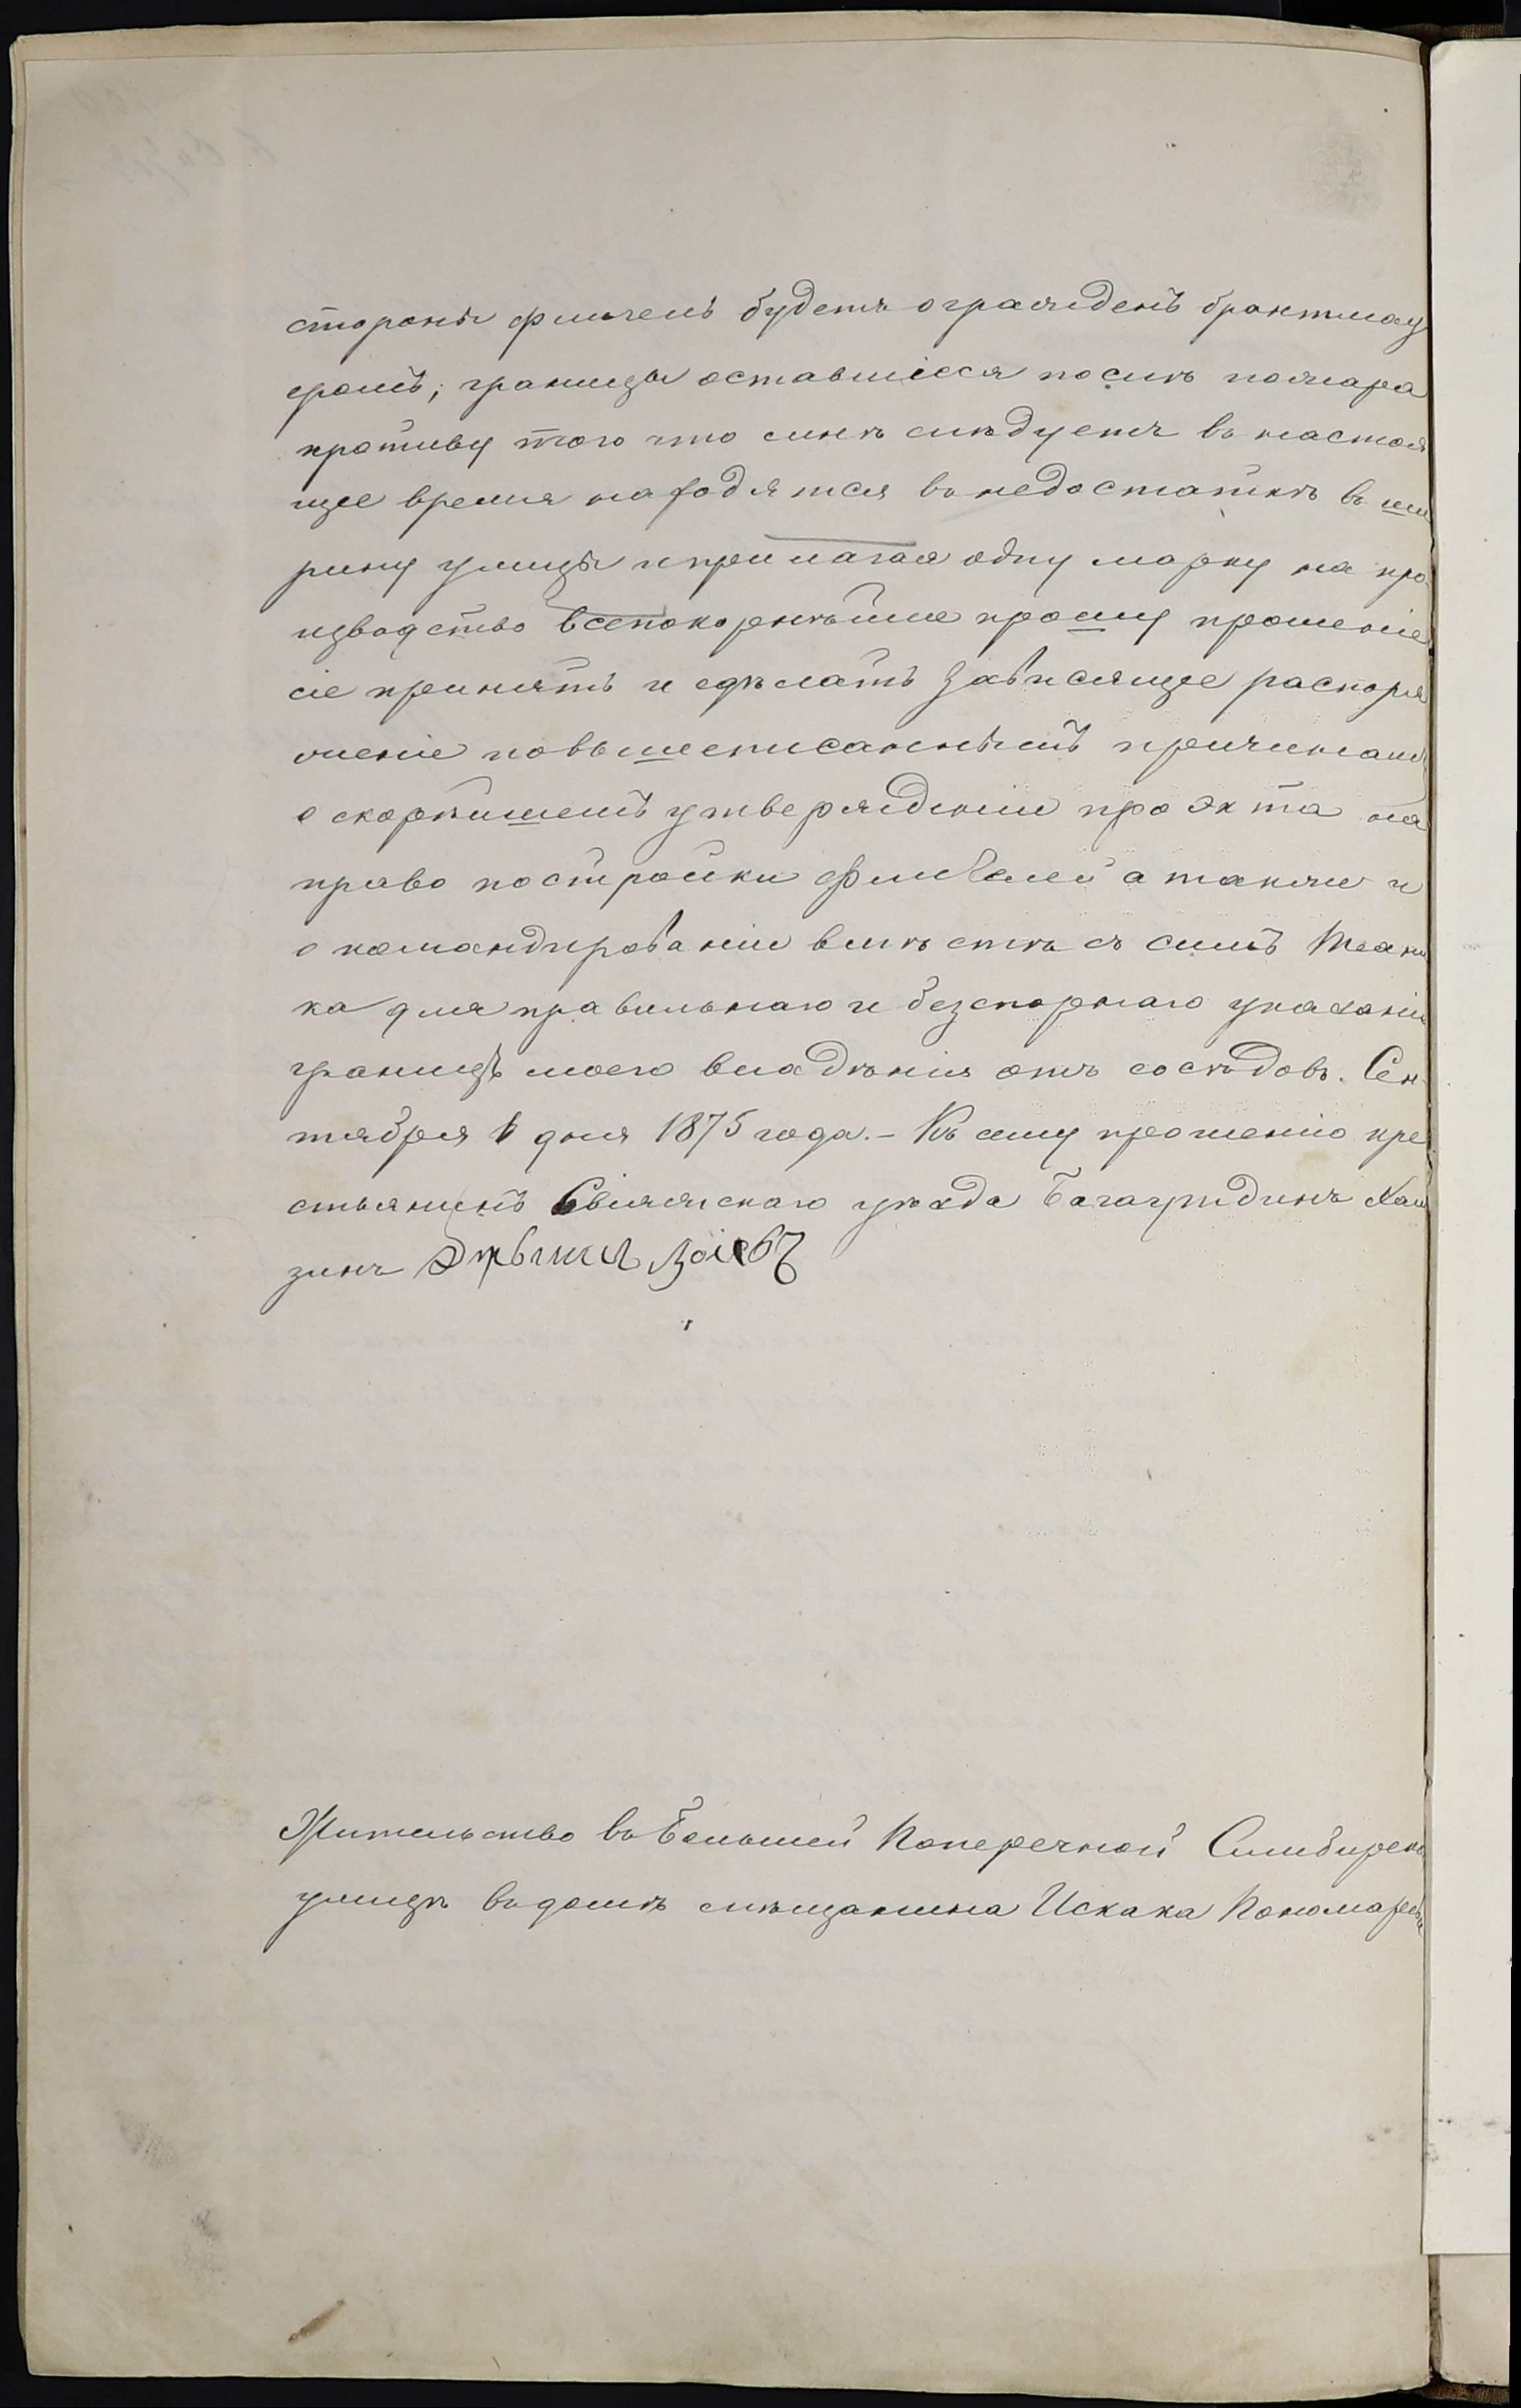 стороны флигель будетъ огражденъ брантмау
еромъ; границы оставшіеся послѣ пожара
противу того что мнѣ слѣдуетъ въ настоя
щее время находятся въ недостаткѣ въ ши
рину улицы и прилагая одну марку на про
изводство всепокорнѣйше прошу прошеніе
сіе принять и сдѣлать зависящее распоря
женіе повышеписаннымъ причинамъ
о скорѣйшемъ утвержденіи проэкта на
право постройки флигелей а также и
о командированіи вмѣстѣ съ симъ Техни
ка для правильнаго и безспорнаго указанія
границъ моего владѣнія отъ сосѣдовъ. Сен
тября дня 1875 года. – Къ сему прошенію кре
стьянинъ Свіяжскаго уѣзда Багаутдинъ
Жительство въ Большей Поперечной Симбирской
улицѣ въ домѣ мѣщанина Искака Пономарева